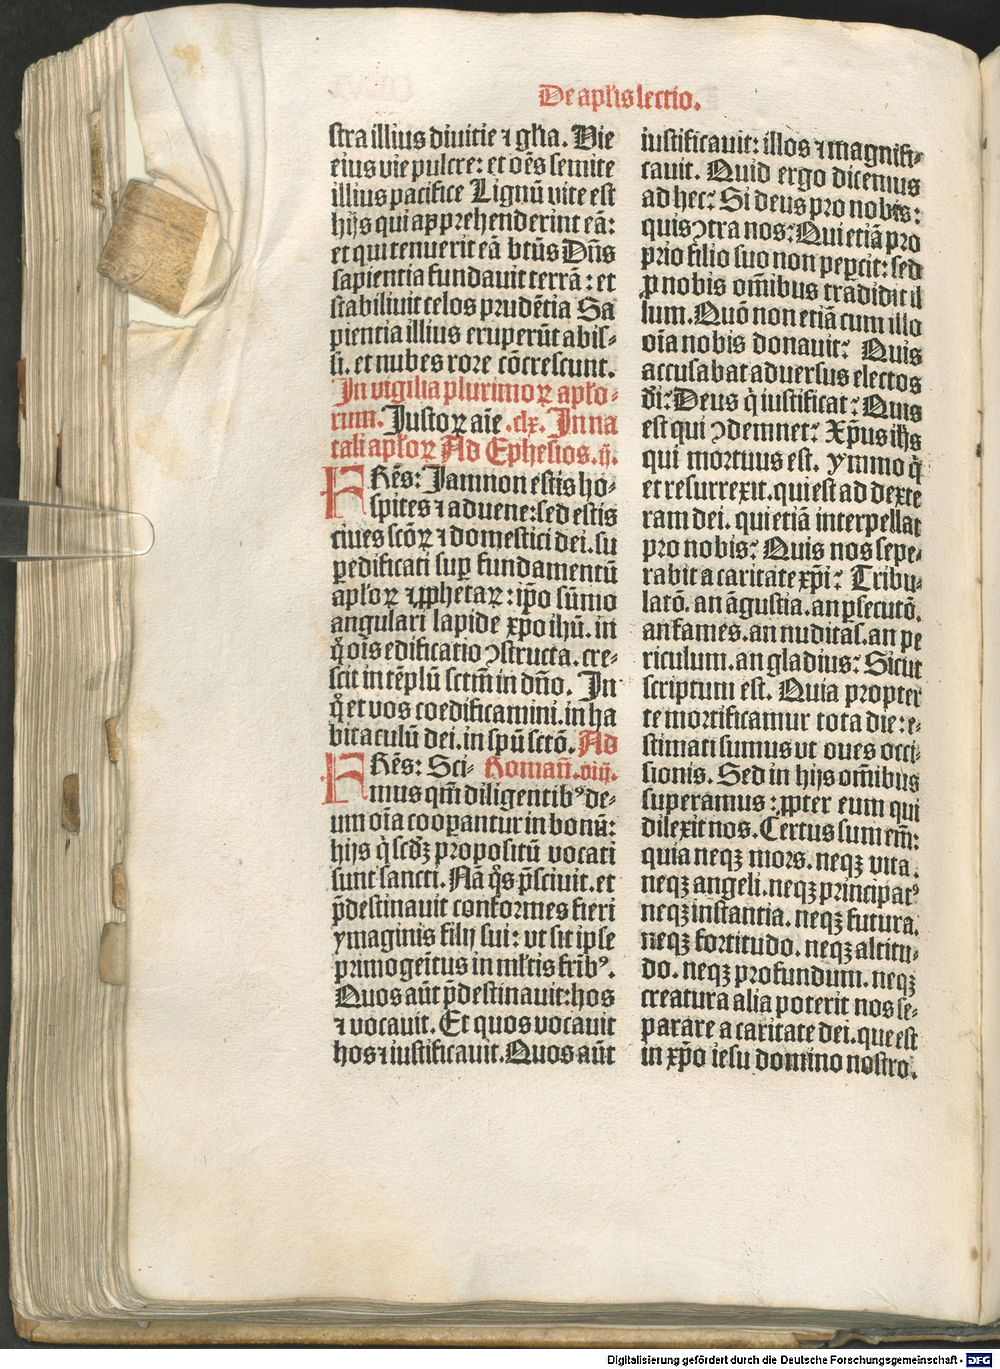 De aplis lectio.
stra illius diuitie ⁊ gl̄ia. Vie
eius vie pulcre: et oēs semite
illius pacifice Lignū vite est
hijs qui apprehenderint eā:
et qui tenuerit eā btūs Dn̄s
sapientia fundauit terrā: et
stabiliuit celos prudētia Sa
pientia illius eruperūt abis⸗
si. et nubes rore cōcrescunt.
In vigilia plurimoꝝ aplo⸗
rum. Iustoꝝ aīe .clx. In na
tali aploꝝ Ad Ephesios .ij.
FRēs: Iam non estis ho⸗
spites ⁊ aduene: sed estis
ciues scōꝝ ⁊ domestici dei. su
ꝑedificati suꝑ fundamentū
aploꝝ ⁊ ꝓphetaꝝ: ip̄o sūmo
angulari lapide xp̄o ihū. in
qͦ ois edificatio ꝯstructa. cre⸗
scit in tēplū sctm̄ in dn̄o. In
qͦ et vos coedificamini. in ha
bitaculū dei. in spū sctō. Ad
FRēs: Sci⸗ Roman̄ .viij.
mus qm̄ diligentibꝰ de⸗
um oīa cooꝑantur in bonū:
hijs q̇ scd̄ꝫ propositū vocati
sunt sancti. Nā qͦs p̄sciuit. et
p̄destinauit conformes fieri
ymaginis filij sui: vt sit ipse
primogeītus in ml̄tis fribꝰ.
Quos aūt p̄destinauit: hos
⁊ vocauit. Et quos vocauit
hos ⁊ iustificauit. Quos aūt
iustificauit: illos ⁊ magnifi⸗
cauit. Quid ergo dicemus
ad hec: Si deus pro nobis:
quis ꝯtra nos: Qui etiā pro
prio filio suo non peꝑcit: sed
ꝓ nobis om̄ibus tradidit il
lum. Quō non etiā cum illo
oīa nobis donauit: Quis
accusabat aduersus electos
dī: Deus q̇ iustificat: Quis
est qui ꝯdemnet: Xp̄us ih̄s
qui mortuus est. ymmo q̇
et resurrexit. qui est ad dexte
ram dei. qui etiā interpellat
pro nobis: Quis nos sepe⸗
rabit a caritate xp̄i: Tribu⸗
latō. an āgustia. an ꝑsecutō.
an fames. an nuditas. an pe
riculum. an gladius: Sicut
scriptum est. Quia propter
te mortificamur tota die: e⸗
stimati sumus vt oues occi⸗
sionis. Sed in hijs om̄ibus
superamus: ꝓpter eum qui
dilexit nos. Certus sum em̄:
quia neqꝫ mors. neqꝫ vita.
neqꝫ angeli. neqꝫ principatꝰ
neqꝫ instantia. neqꝫ futura.
neqꝫ fortitudo. neqꝫ altitu⸗
do. neqꝫ profundum. neqꝫ
creatura alia poterit nos se⸗
parare a caritate dei. que est
in xp̄o iesu domino nostro.
Digitalisierung gefördert durch die Deutsche Forschungsgemeinschaft - DFG